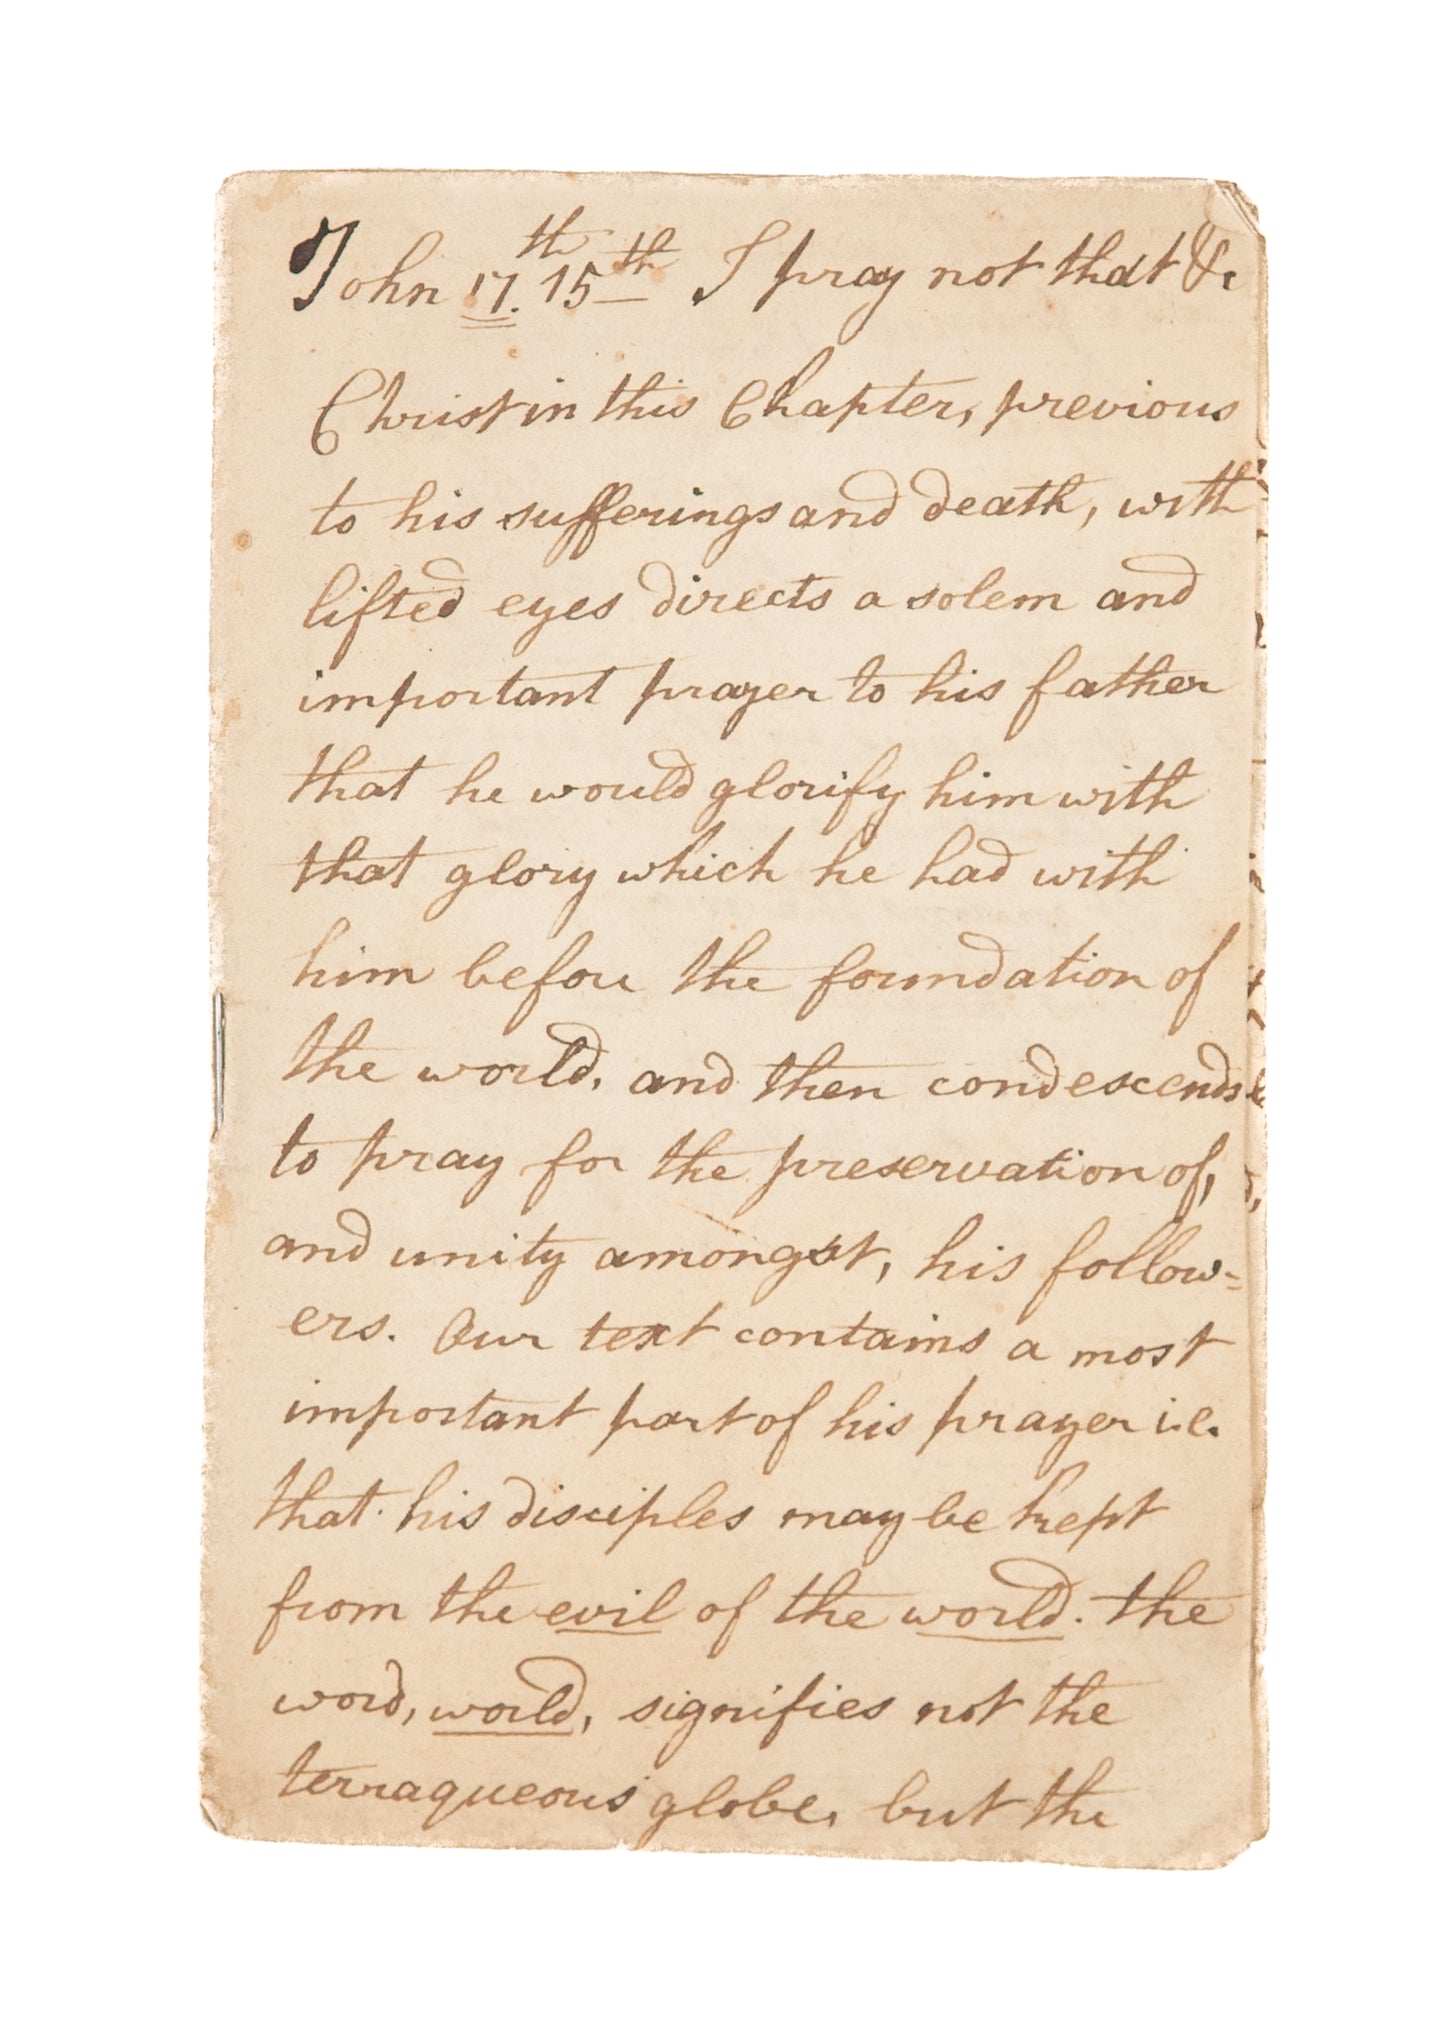 John 17.th 15th I pray not that &c
Christ in this Chapter, previous
to his sufferings and death, with
lifted eyes directs a solem and
important prayer to his father
that he would glorify him with
that glory which he had with
him before the foundation of
the world, and then condescends
to pray for the preservation of,
and unity amongst, his follow=
ers. Our text contains a most
important part of his prayer i.e.
that his disciples may be kept
from the evil of the world. the
word, world, signifies not the
terraqueous globe, but the